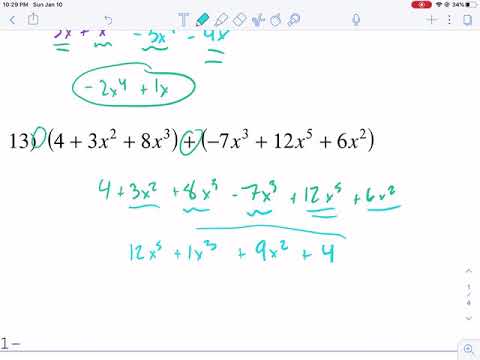 10:29 PM Sun Jan 10
34%
- 2x⁴ + 1x
13) (4 + 3x² + 8x³) + (−7x³ + 12x⁵ + 6x²)
4 + 3x² + 8x³ - 7x³ + 12x⁵ + 6x²
12x⁵ + 1x³ + 9x² + 4
1
/
6
1-